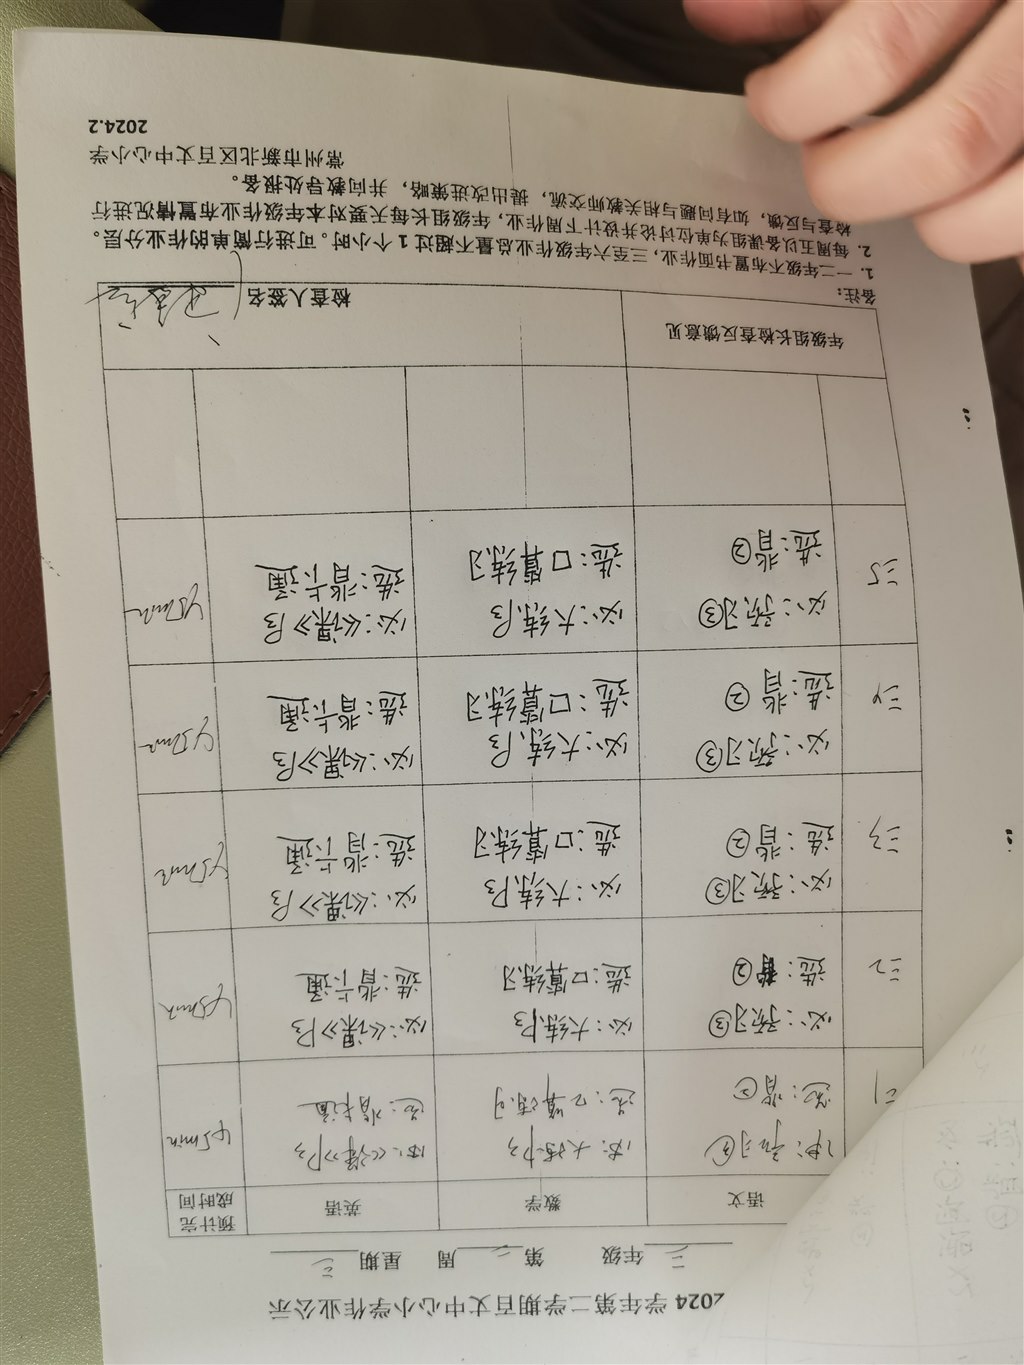 2024 学年第二学期百丈中心小学作业公示
三 年级 第 二 周 星期 三
语文 数学 英语 预计完成时间
三1 必：预习③ 必：大练P3 必：《课》P3 45min
选：背② 选：口算练习 选：背卡通
三2 必：预习③ 必：大练P3 必：《课》P3 45min
选：背② 选：口算练习 选：背卡通
三3 必：预习③ 必：大练P3 必：《课》P3 45min
选：背② 选：口算练习 选：背卡通
三4 必：预习③ 必：大练P3 必：《课》P3 45min
选：背② 选：口算练习 选：背卡通
三5 必：预习③ 必：大练P3 必：《课》P3 45min
选：背② 选：口算练习 选：背卡通
年级组长检查反馈意见 检查人签名
备注：
1. 一二年级不布置书面作业，三至六年级作业总量不超过 1 个小时。可进行简单的作业分层。
2. 每周五以备课组为单位讨论并设计下周作业，年级组长每天要对本年级作业布置情况进行
检查与反馈，如有问题与相关教师交流，提出改进策略，并向教导处报备。
常州市新北区百丈中心小学
2024.2